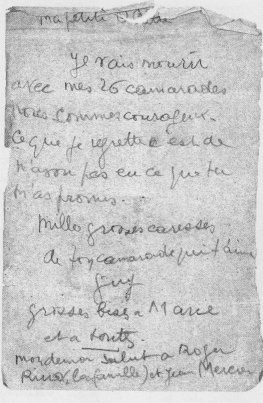 ma petite Odette
Je vais mourir
avec mes 26 camarades
nous sommes courageux.
Ce que je regrette c'est de
n'avoir pas eu ce que tu
m'as promis.
Mille grosses caresses
de ton camarade qui t'aime
Guy
grosses bises a Marie
et a toutes
mon dernier salut a Roger
(la famille) et Jean Mercier